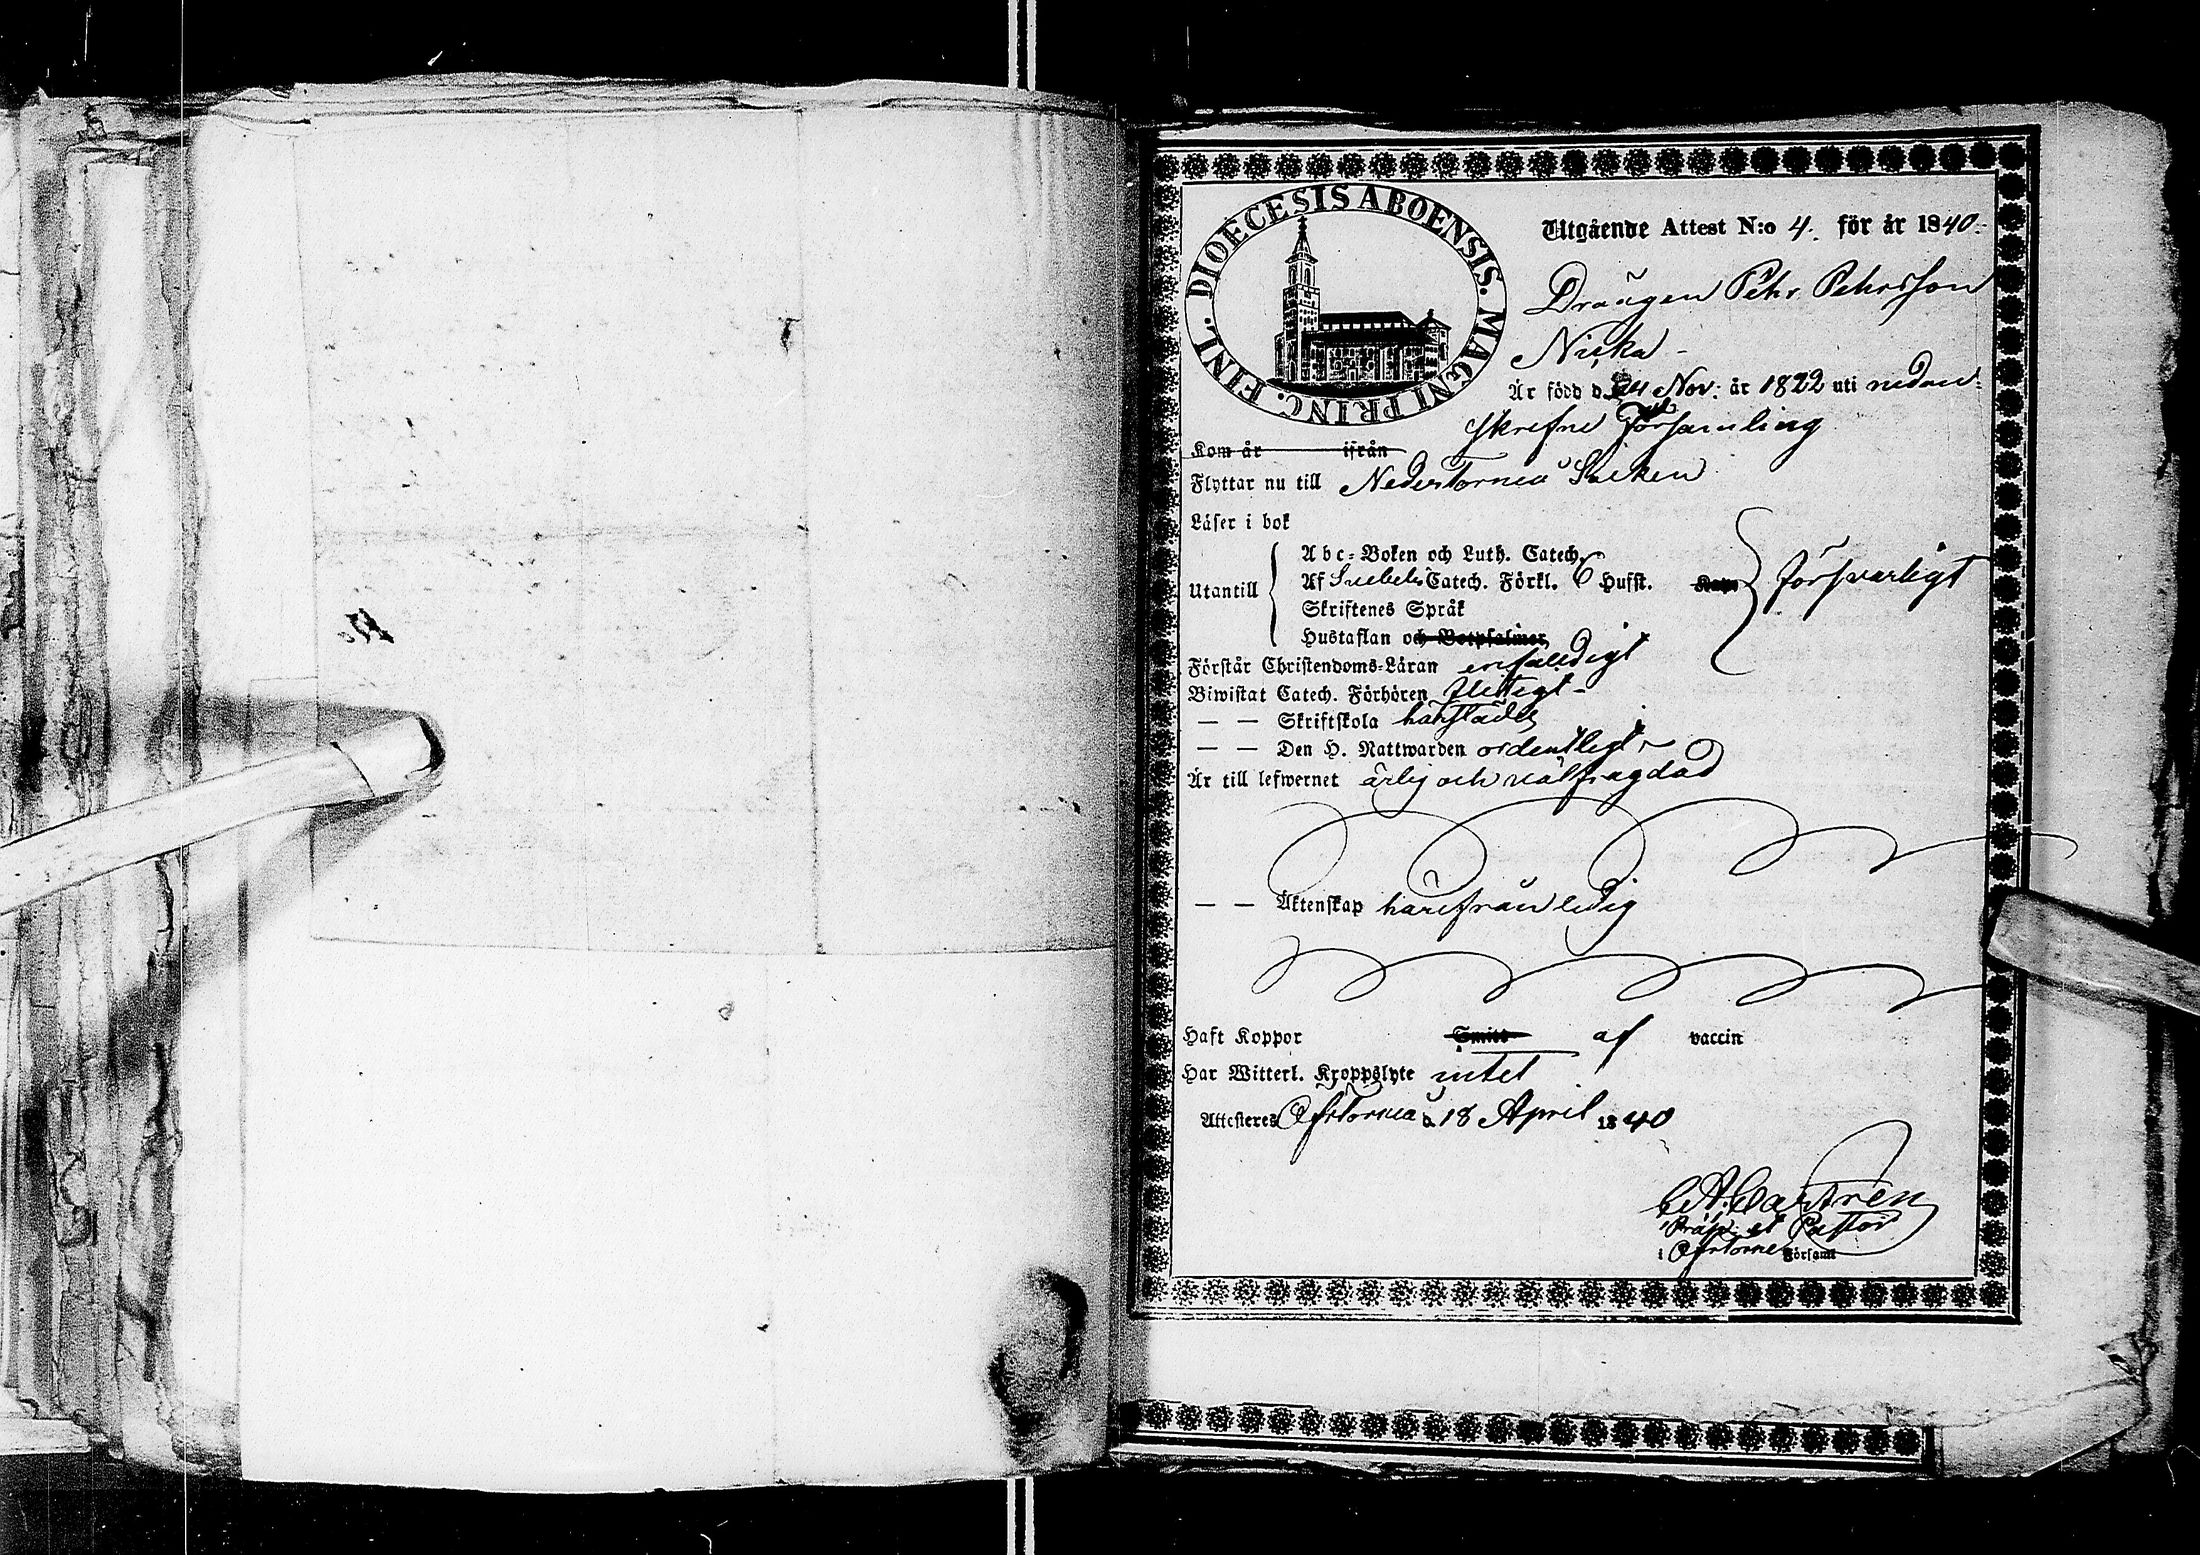 DIOECESIS ABOENSIS. MAGNI PRINC. FINL.
Utgående Attest N:o 4. för år 1840.
Drängen Pehr Pehrsson
Niska
Är född d. 24 Nov: år 1822 uti nedan-
skrefne Församling
Kom år ifrån
Flyttar nu till Nedertorneå Socken
Läser i bok
Abc-Boken och Luth. Catech.
Utantill Af Svebelii Catech. Förkl. 6 Hufst. försvarligt
Skriftenes Språk
Hustaflan och Botpsalmer
Förstår Christendoms-Läran enfaldigt
Biwistat Catech. Förhören flitigt
— — Skriftskola härstädes
— — Den H. Nattwarden ordentligt
Är till lefwernet ärlig och välfrägdad
— — Äktenskap härifrån ledig
Haft Koppor Smitt af vaccin
Har Witterl. Kroppslyte intet
Attesteres Öfvertorneå d. 18 April 1840
Castrén
Præp. et Pastor
i Öfvertorneå Församl